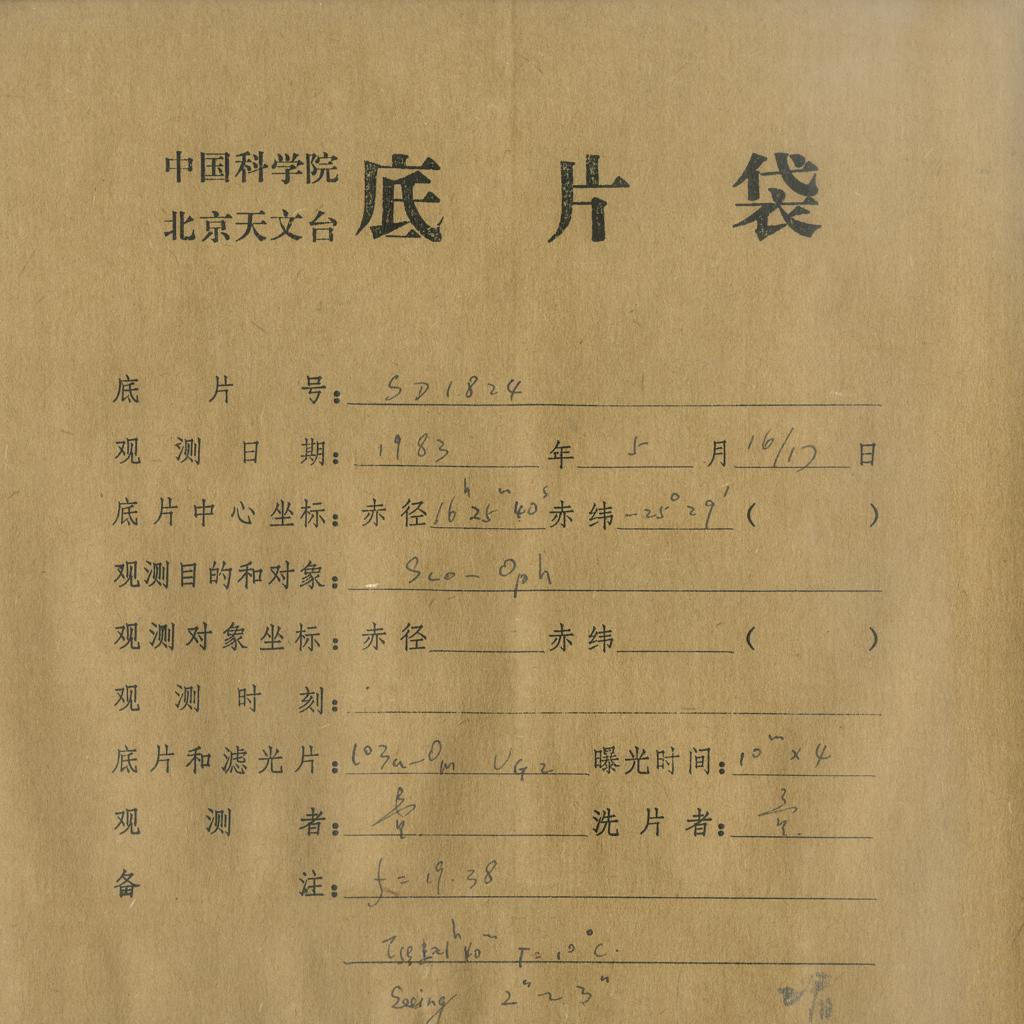 中国科学院
北京天文台
底片袋
底片号: SD1824
观测日期: 1983年5月16/17日
底片中心坐标: 赤径16h25m40s赤纬-25°29′( )
观测目的和对象: Sco-Oph
观测对象坐标: 赤径 赤纬 ( )
观测时刻:
底片和滤光片: 103a-O UG2 曝光时间: 10m×4
观测者:
洗片者:
备注: f=19.38
40m T=10°C.
Seeing 2″~3″